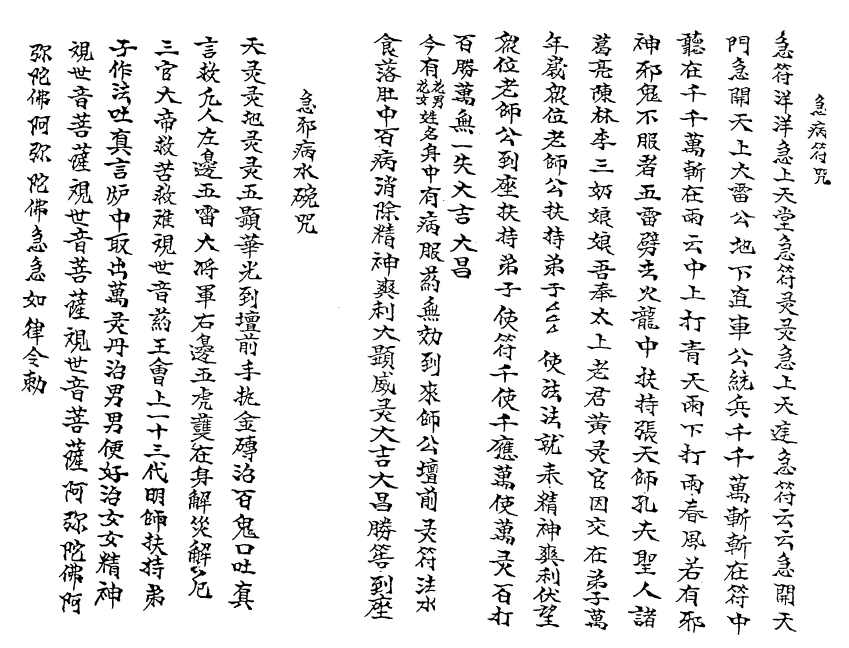 急病符咒
急符洋洋急上天堂急符灵灵急上天達急符云云急開天
門急開天上大雷公地下直車公統兵千千萬斬斬在符中
聽在千千萬斬在雨云中上打青天雨下打雨春風若有邪
神邪鬼不服者五雷劈去火龍中扶持張天師孔夫聖人諸
葛亮陳林李三奶娘娘吾奉太上老君黄灵官因交在弟子萬
年嚴眾位老師公扶持弟子厶厶厶使法法就未精神爽利伏望
眾位老師公到座扶持弟子使符千使千應萬使萬灵百打
百勝萬無一失大吉大昌
今有花男花女姓名身中有病服药無効到來師公壇前灵符法水
食落肚中百病消除精神爽利大顯威灵大吉大昌勝筶到座
急邪病水碗咒
天灵灵地灵灵五顯華光到壇前手执金磚治百鬼口吐真
言救凡人左邊五雷大将軍右邊五虎護在身解災解厄
三官大帝救苦救难視世音药王會上一十三代明師扶持弟
子作法吐真言炉中取出萬灵丹治男男便好治女女精神
視世音菩薩視世音菩薩視世音菩薩阿弥陀佛阿
弥陀佛阿弥陀佛急急如律令勅